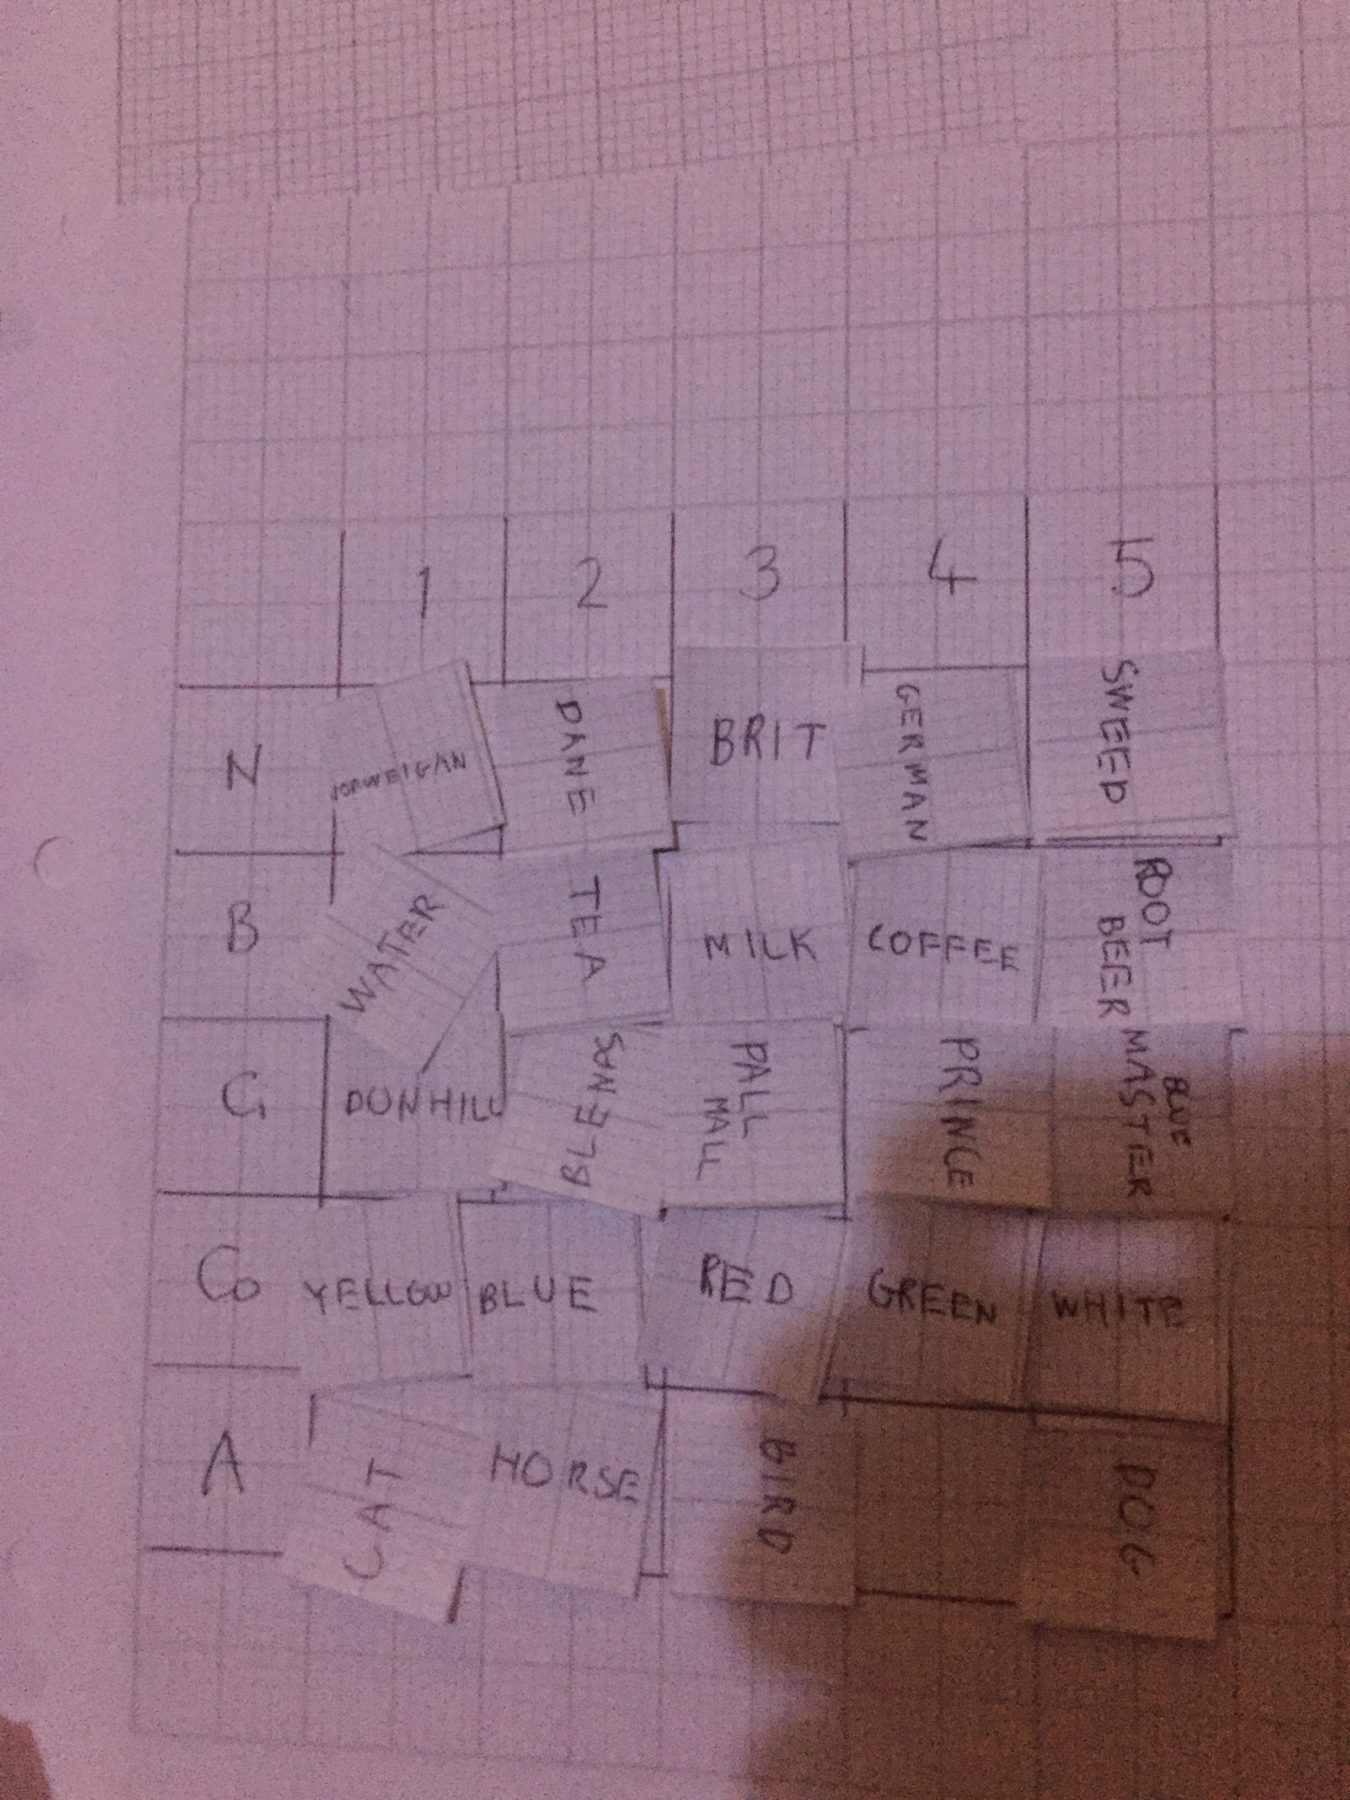 1 2 3 4 5
N NORWEIGAN DANE BRIT GERMAN SWEED
B WATER TEA MILK COFFEE ROOT BEER
G DUNHILL BLENAS PALL MALL PRINCE BLUE MASTER
Co YELLOW BLUE RED GREEN WHITE
A CAT HORSE BIRD DOG